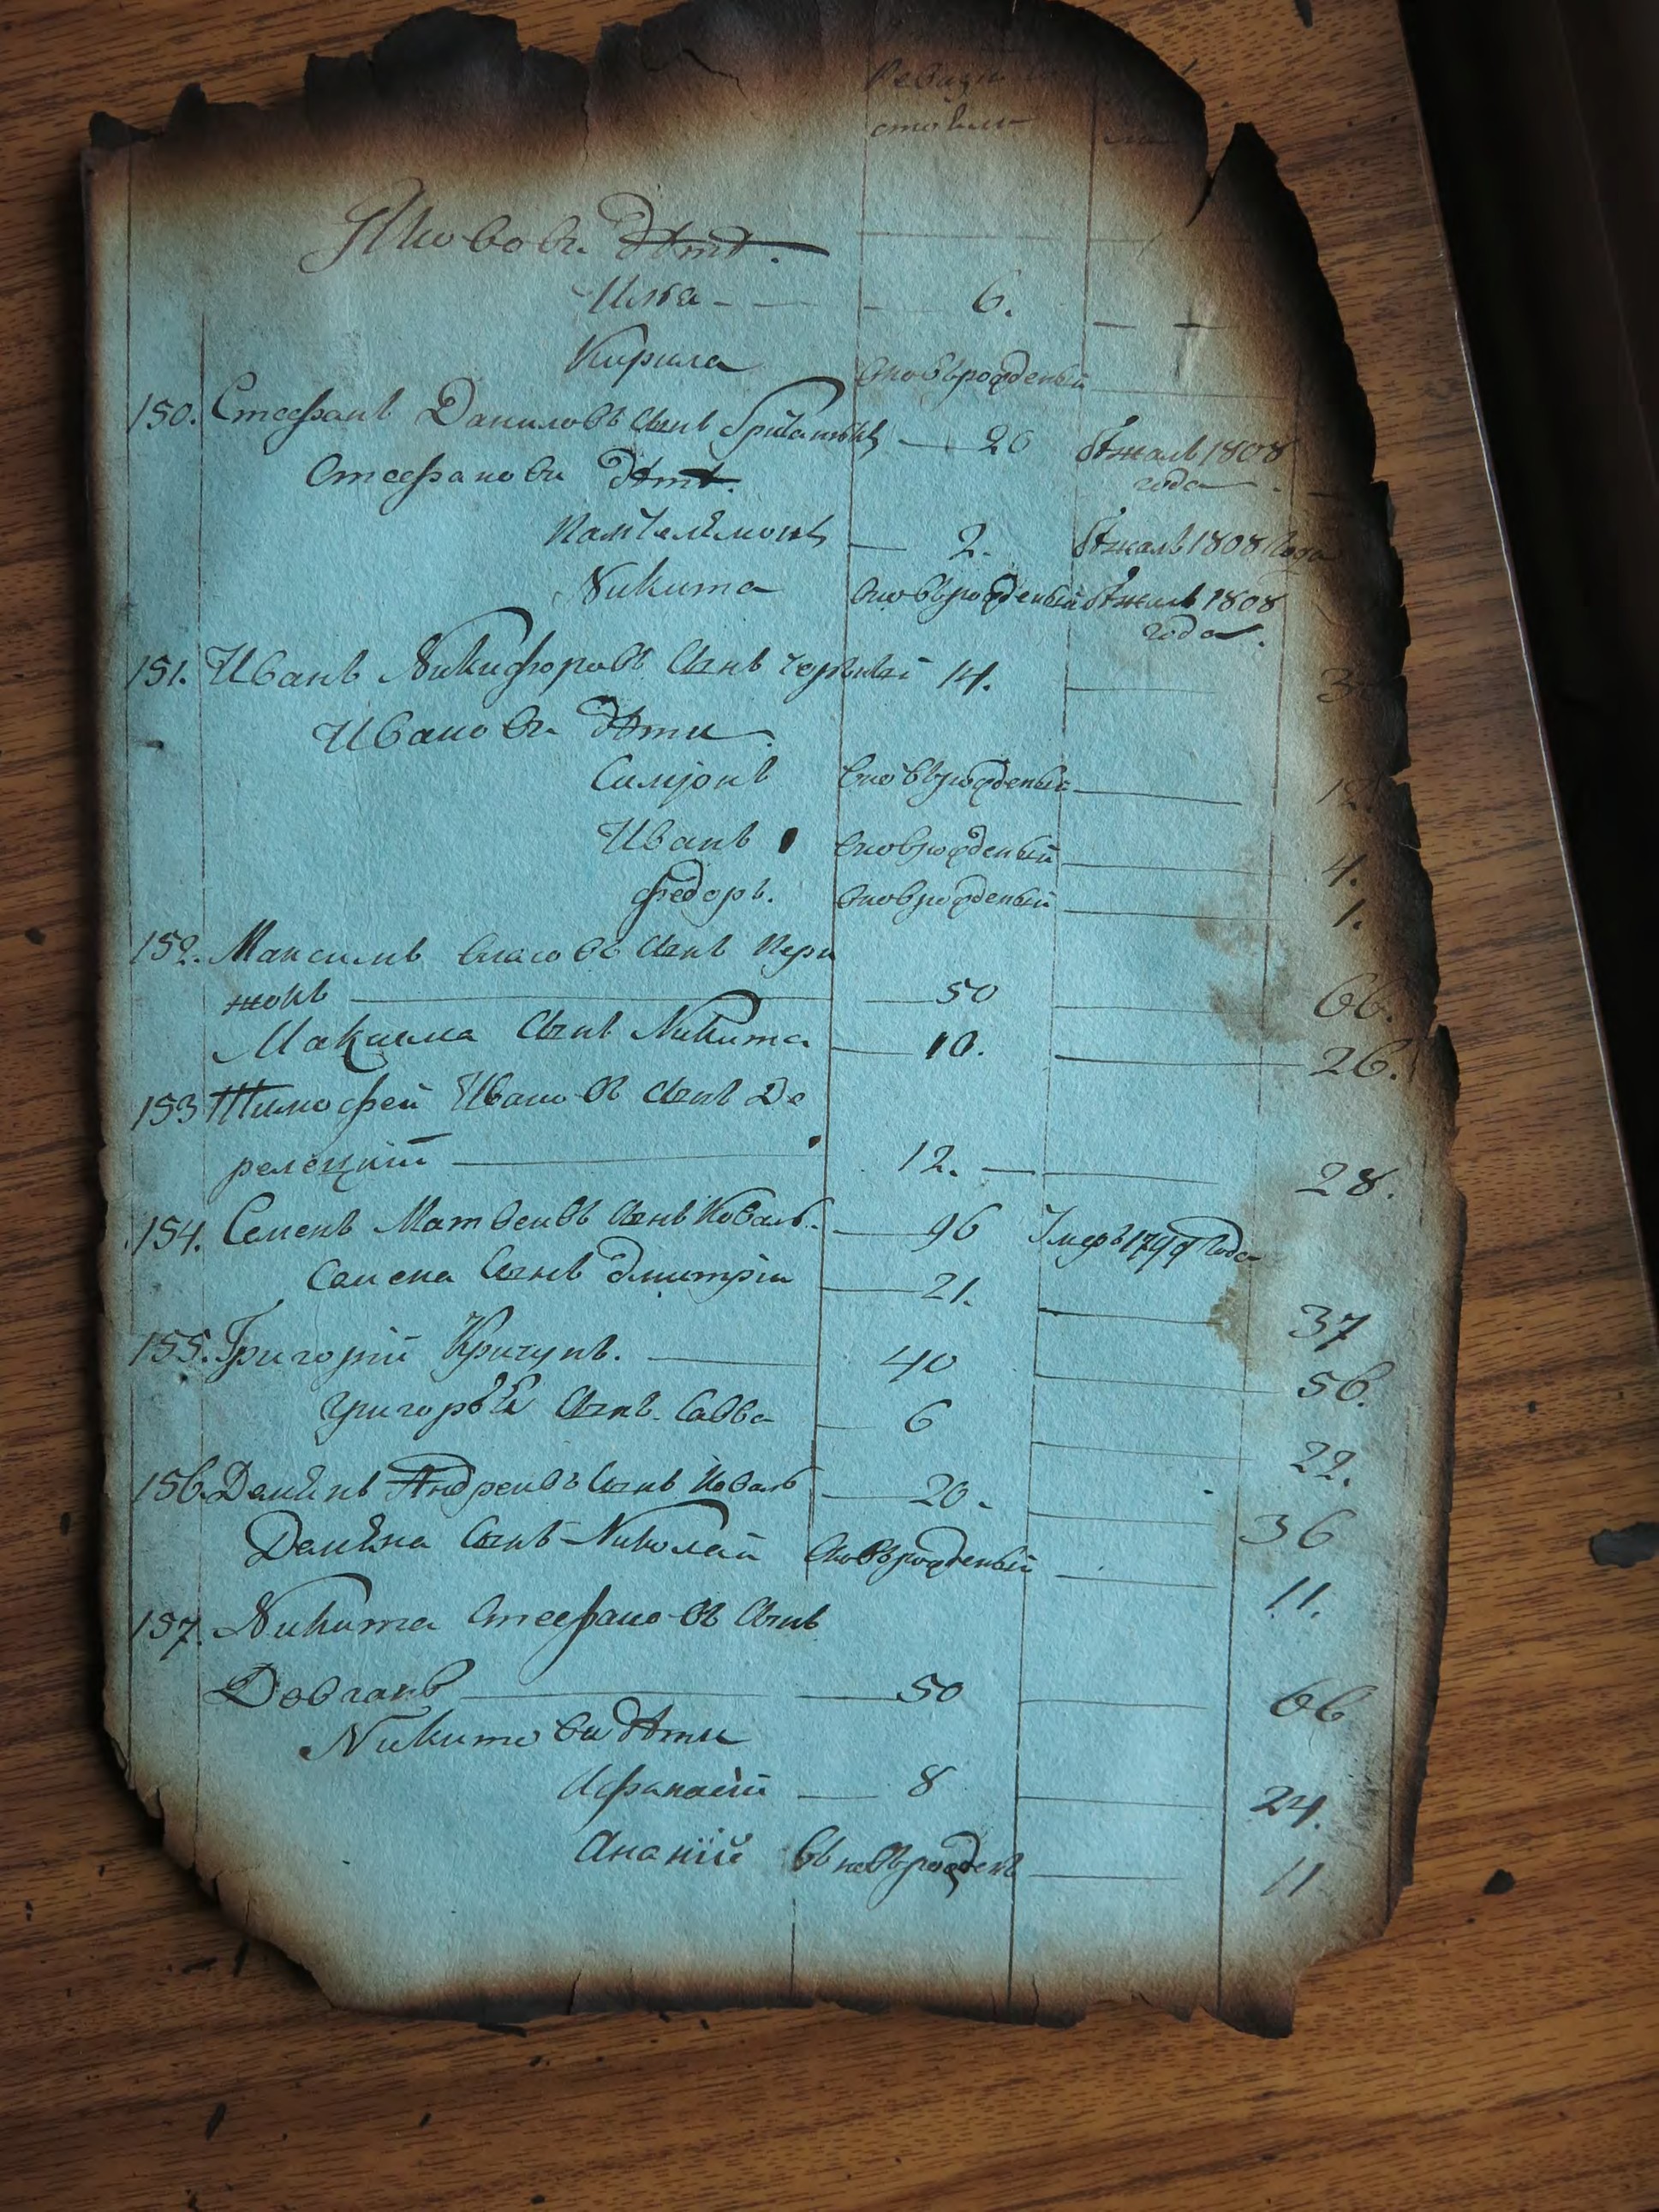 Ревизи
стояли
Яковови дѣти.
Илья — — 6. — —
Кирила вновьрожденый
150. Стефанъ Даниловъ сынъ — 26 бѣжалъ 1808 года
Стефанови дѣти.
Пантелѣмонъ — 2. бѣжалъ 1808 года
Никита вновьрожденый бѣжалъ 1808 года.
151. Иванъ Никифоровъ сынъ Чорный 14. — 3
Иванови дѣти.
Симіонъ вновьрожденый — 12.
Иванъ вновьрожденый — 4.
Федоръ. вновьрожденый — 1.
152. Максимъ Власовъ сынъ Пери
жокъ — 50 — 66.
Максима сынъ Никита — 10. — 26.
153 Тимофей Ивановъ сынъ Де
релецкій — 12. — 28.
154. Семенъ Матвеивъ сынъ Коваль. — 96 Умеръ 1799 года
Семена сынъ Дмитрій — 21. — 37
155. Григорій Кричунъ. — 40 — 56.
Григорѣя сынъ Савва — 6 — 22.
156. Демянъ Андреивъ сынъ Коваль — 20. — 36
Демяна сынъ Николай вновьрожденый — 11.
157. Никита Стефановъ сынъ
Довганъ — 50 — 66
Никитови дѣти
Афанасій — 8 — 24.
Ананій вновьрожденъ — 11